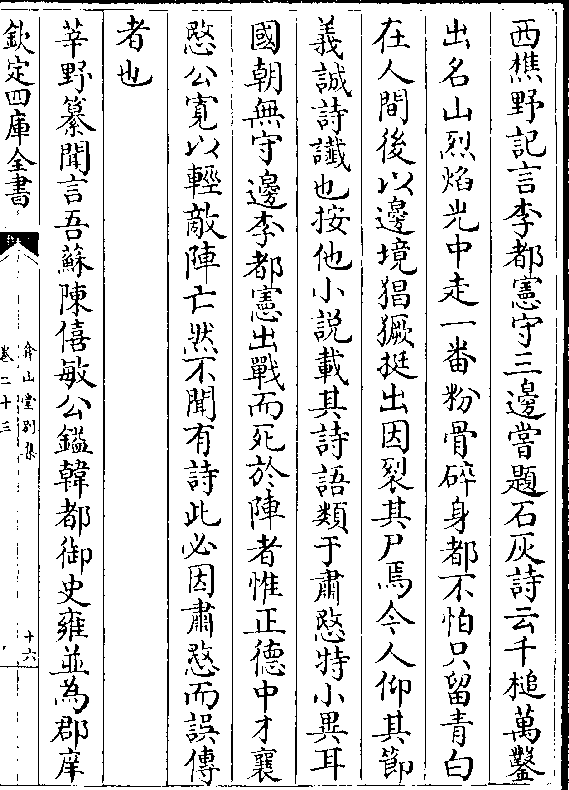 西樵野記言李都憲守三邊嘗題石灰詩云千槌萬鑿
出名山烈焰光中走一番粉骨碎身都不怕只留青白
在人間後以邊境猖獗挺出因裂其尸焉今人仰其節
義誠詩讖也按他小説載其詩語類于肅愍特小異耳
國朝無守邊李都憲出戰而死於陣者惟正德中才襄
愍公寛以輕敵陣亡然不聞有詩此必因肅愍而誤傳
者也
莘野纂聞言吾蘇陳僖敏公鎰韓都御史雍並為郡庠
欽定四庫全書
弇山堂别集
卷二十三
十六